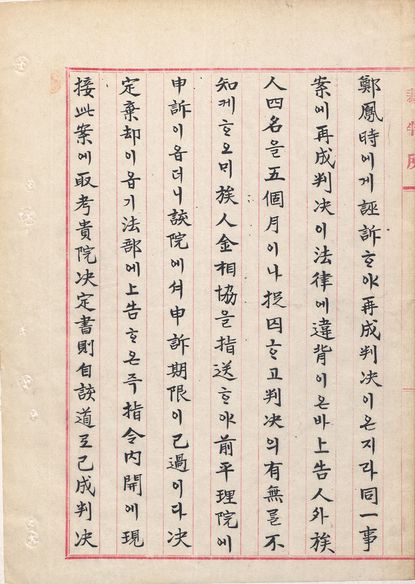 鄭鳳時에게誣訴ᄒᆞ야再成判决이온지라同一事
案에再成判决이法律에違背이온바上告人外族
人四名을五個月이나捉囚ᄒᆞ고判决의有無를不
知케ᄒᆞ오ᄆᆡ族人金相協을指送ᄒᆞ야前平理院에
申訴이옵더니該院에셔申訴期限이已過이다决
定棄却이옵기法部에上告ᄒᆞ온즉指令內開에現
接此案에取考貴院决定書則自該道로已成判决